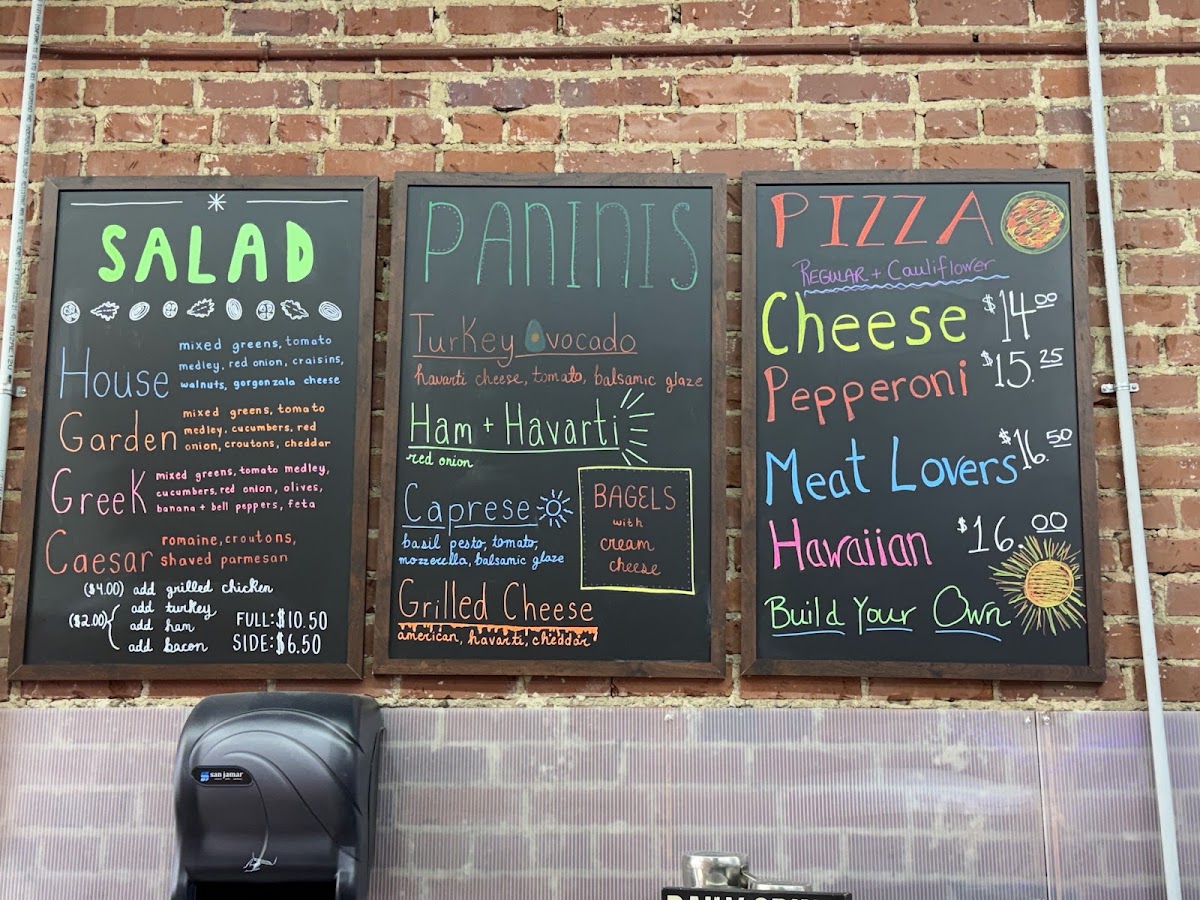 SALAD
House
mixed greens, tomato
medley, red onion, craisins,
walnuts, gorgonzola cheese
Garden
mixed greens, tomato
medley, cucumbers, red
onion, croutons, cheddar
Greek
mixed greens, tomato medley,
cucumbers, red onion, olives,
banana + bell peppers, feta
Caesar
romaine, croutons,
shaved parmesan
($4.00) add grilled chicken
($2.00) { add turkey
add ham
add bacon
FULL: $10.50
SIDE: $6.50
PANINIS
Turkey Avocado
havarti cheese, tomato, balsamic glaze
Ham + Havarti
red onion
Caprese
basil pesto, tomato,
mozzerella, balsamic glaze
BAGELS
with
cream
cheese
Grilled Cheese
american, havarti, cheddar
PIZZA
REGULAR + Cauliflower
Cheese $14.00
Pepperoni $15.25
Meat Lovers $16.50
Hawaiian $16.00
Build Your Own
san jamar